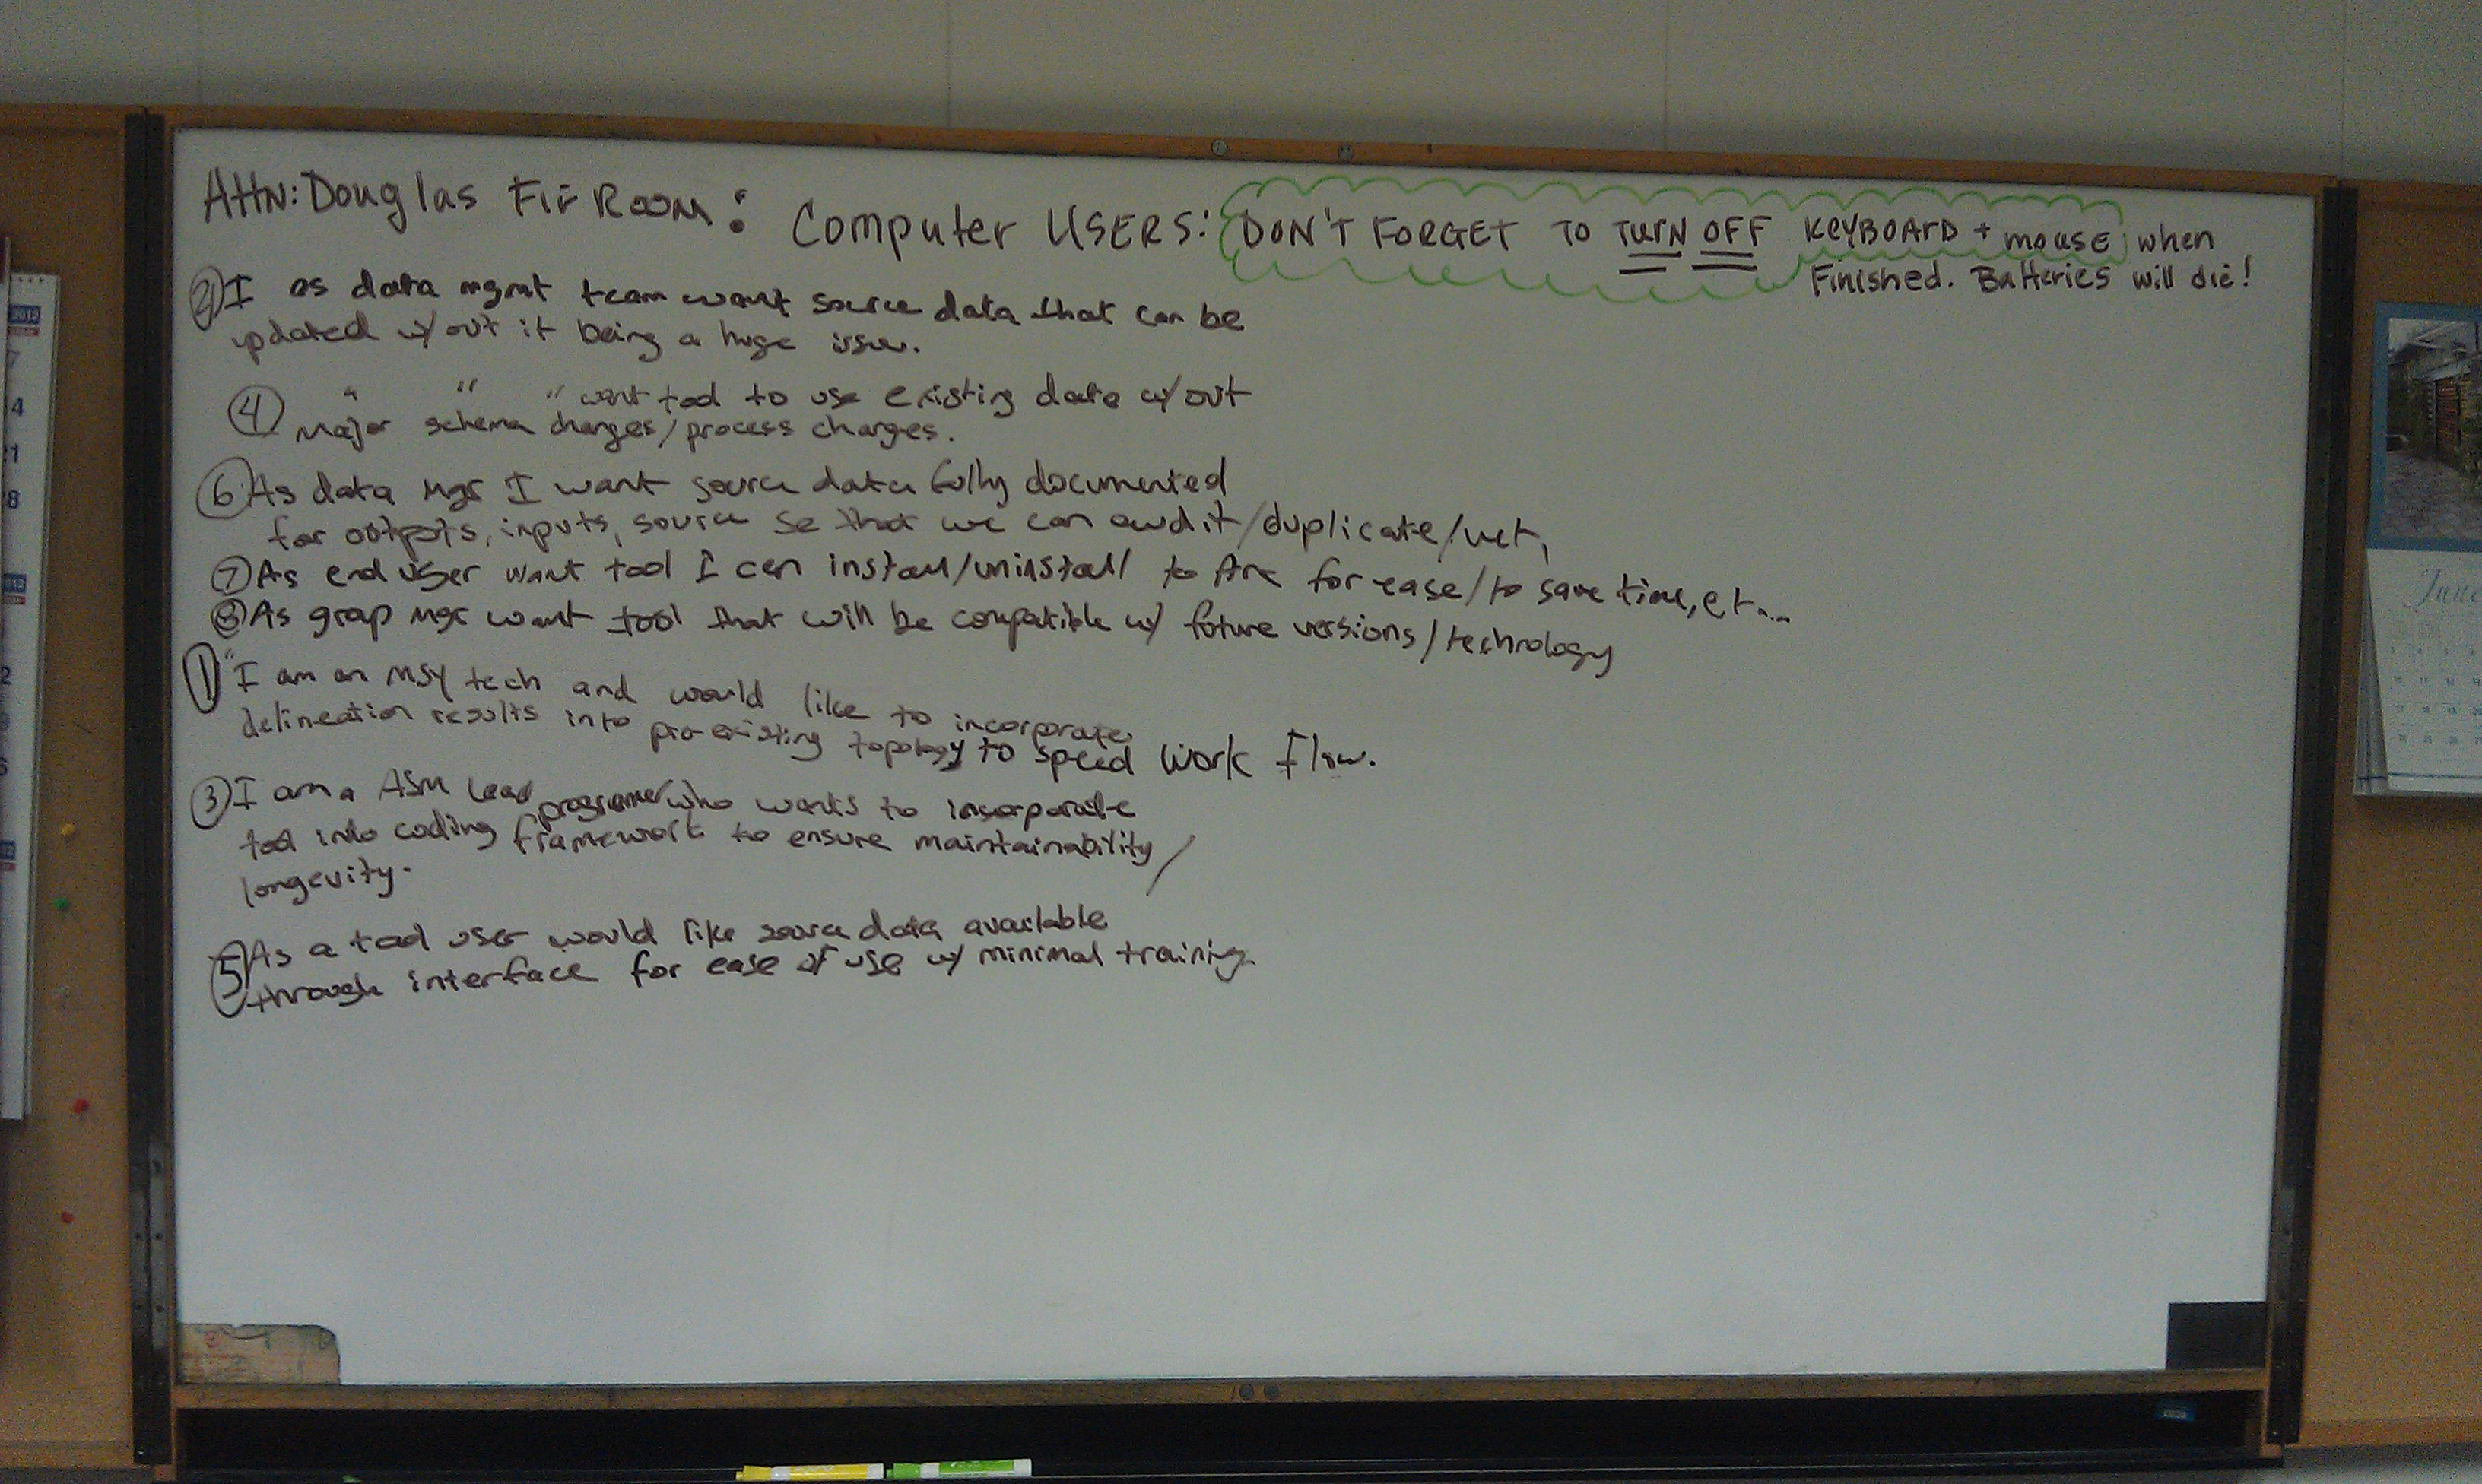 Attn: Douglas Fir Room: Computer USERS: DON'T FORGET TO TURN OFF KEYBOARD + mouse when
Finished. Batteries will die!
② I as data mgmt team want source data that can be
updated w/out it being a huge issue.
④ " " " want tool to use existing data w/out
major schema changes/process changes.
⑥ As data mgr I want source data fully documented
for outputs, inputs, source so that we can audit/duplicate/vet,
⑦ As end user want tool I can install/uninstall to Arc for ease/to save time, et...
⑧ As group mgr want tool that will be compatible w/ future versions/technology
① "I am an MSY tech and would like to incorporate
delineation results into pre-existing topology to speed work flow.
③ I am a ASM lead programmer who wants to incorporate
tool into coding framework to ensure maintainability/
longevity.
⑤ As a tool user would like source data available
through interface for ease of use w/ minimal training.
2012
7
4
8
2012
June